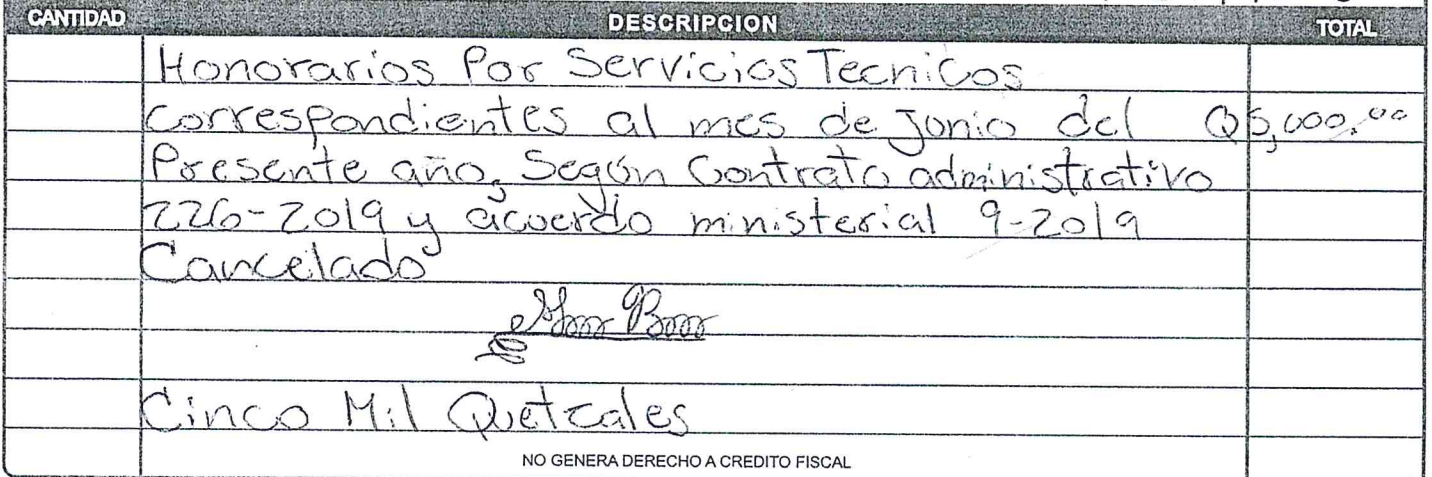 CANTIDAD DESCRIPCION TOTAL
Honorarios Por Servicios Tecnicos
correspondientes al mes de Junio del Q5,000.00
Presente año, Según Contrato administrativo
226-2019 y acuerdo ministerial 9-2019
Cancelado
Cinco Mil Quetzales
NO GENERA DERECHO A CREDITO FISCAL